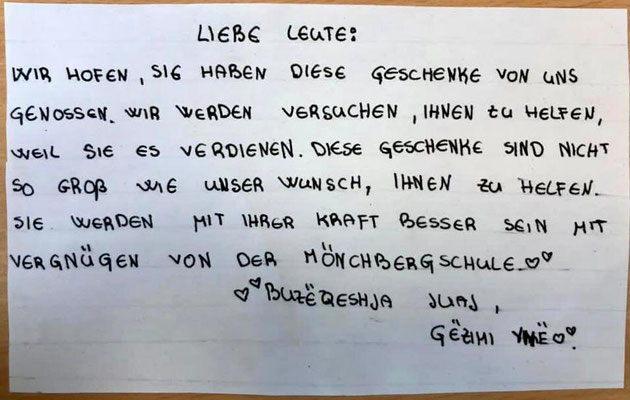 LIEBE LEUTE:
WIR HOFEN, SIE HABEN DIESE GESCHENKE VON UNS
GENOSSEN. WIR WERDEN VERSUCHEN, IHNEN ZU HELFEN,
WEIL SIE ES VERDIENEN. DIESE GESCHENKE SIND NICHT
SO GROß WIE UNSER WUNSCH, IHNEN ZU HELFEN.
SIE WERDEN MIT IHRER KRAFT BESSER SEIN MIT
VERGNÜGEN VON DER MÖNCHBERGSCHULE.♡♡
♡♡BUZËQESHJA JUAJ,
GËZIMI YNË♡♡.